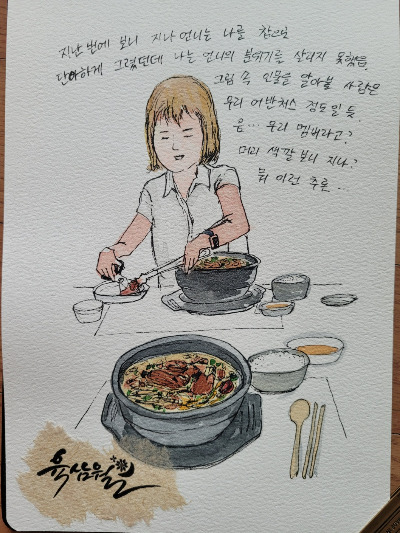 지난번에 보니 지나언니는 나를 참으로
단아하게 그렸던데 나는 언니의 분위기를 살리지 못했음
그림 속 인물을 알아볼 사람은
우리 어반쳐스 정도일 듯.
음... 우리 멤버라고?
머리 색깔 보니 지나?
뭐 이런 추론.
육삼월